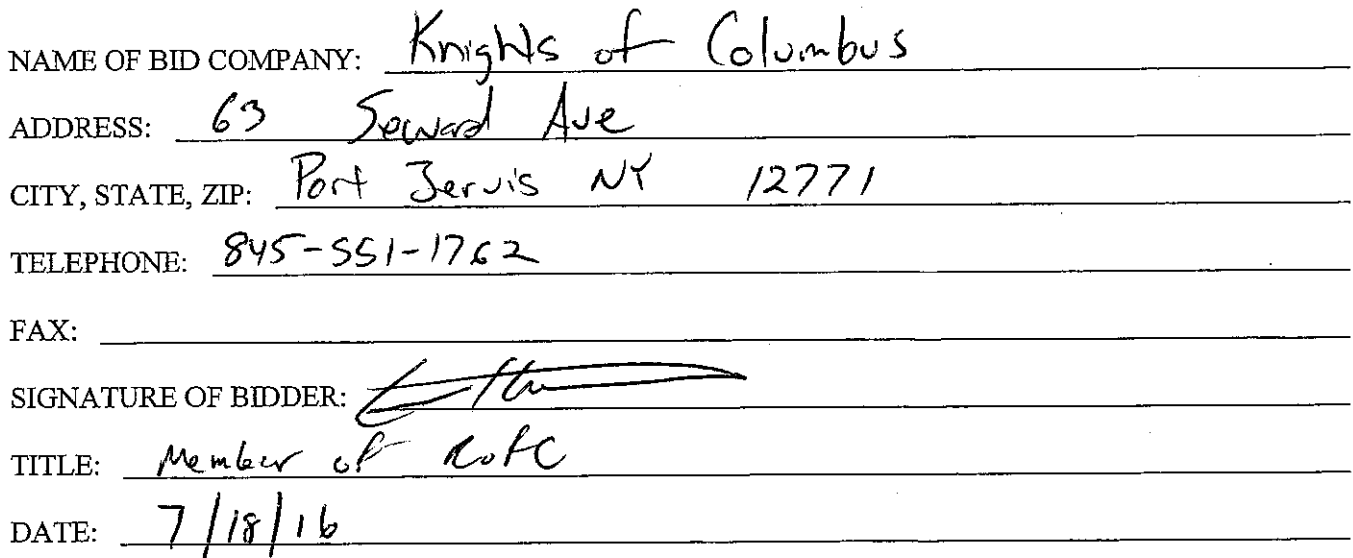 NAME OF BID COMPANY: Knights of Columbus
ADDRESS: 63 Seward Ave
CITY, STATE, ZIP: Port Jervis NY 12771
TELEPHONE: 845-551-1762
FAX:
SIGNATURE OF BIDDER:
TITLE: Member of KofC
DATE: 7/18/16